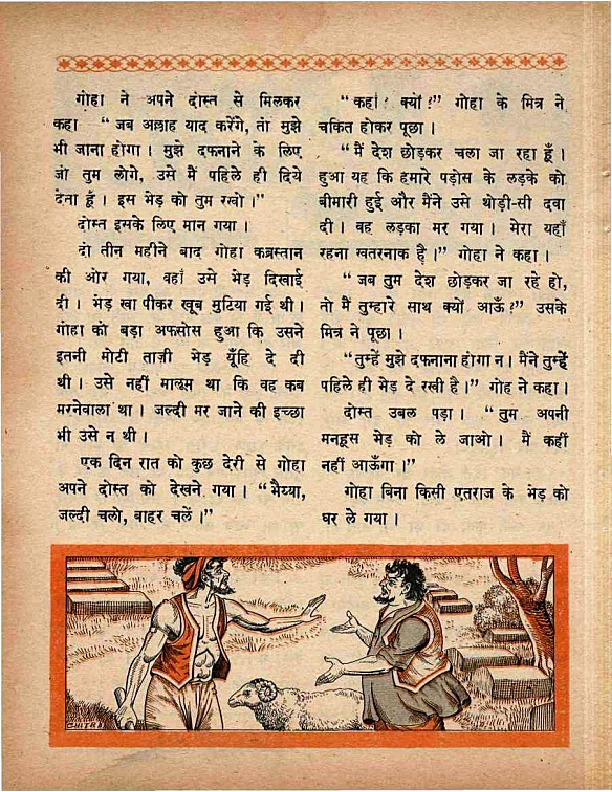 गोहा ने अपने दोस्त से मिलकर
कहा “जब अल्लाह याद करेंगे, तो मुझे
भी जाना होगा। मुझे दफनाने के लिए
जो तुम लोगे, उसे मैं पहिले ही दिये
देता हूँ। इस भेड़ को तुम रखो।”
दोस्त इसके लिए मान गया।
दो तीन महीने बाद गोहा कब्रस्तान
की ओर गया, वहां उसे भेड़ दिखाई
दी। भेड़ खा पीकर खूब मुटिया गई थी।
गोहा को बड़ा अफसोस हुआ कि उसने
इतनी मोटी ताज़ी भेड़ यूँहि दे दी
थी। उसे नहीं मालूम था कि वह कब
मरनेवाला था। जल्दी मर जाने की इच्छा
भी उसे न थी।
एक दिन रात को कुछ देरी से गोहा
अपने दोस्त को देखने गया। “भैय्या,
जल्दी चलो, बाहर चलें।”
“कहां? क्यों?” गोहा के मित्र ने
चकित होकर पूछा।
“मैं देश छोड़कर चला जा रहा हूँ।
हुआ यह कि हमारे पड़ोस के लड़के को
बीमारी हुई और मैंने उसे थोड़ी-सी दवा
दी। वह लड़का मर गया। मेरा यहाँ
रहना खतरनाक है।” गोहा ने कहा।
“जब तुम देश छोड़कर जा रहे हो,
तो मैं तुम्हारे साथ क्यों आऊँ?” उसके
मित्र ने पूछा।
“तुम्हें मुझे दफनाना होगा न। मैंने तुम्हें
पहिले ही भेड़ दे रखी है।” गोह ने कहा।
दोस्त उबल पड़ा। “तुम अपनी
मनहूस भेड़ को ले जाओ। मैं कहीं
नहीं आऊँगा।”
गोहा बिना किसी एतराज के भेड़ को
घर ले गया।
CHITRA